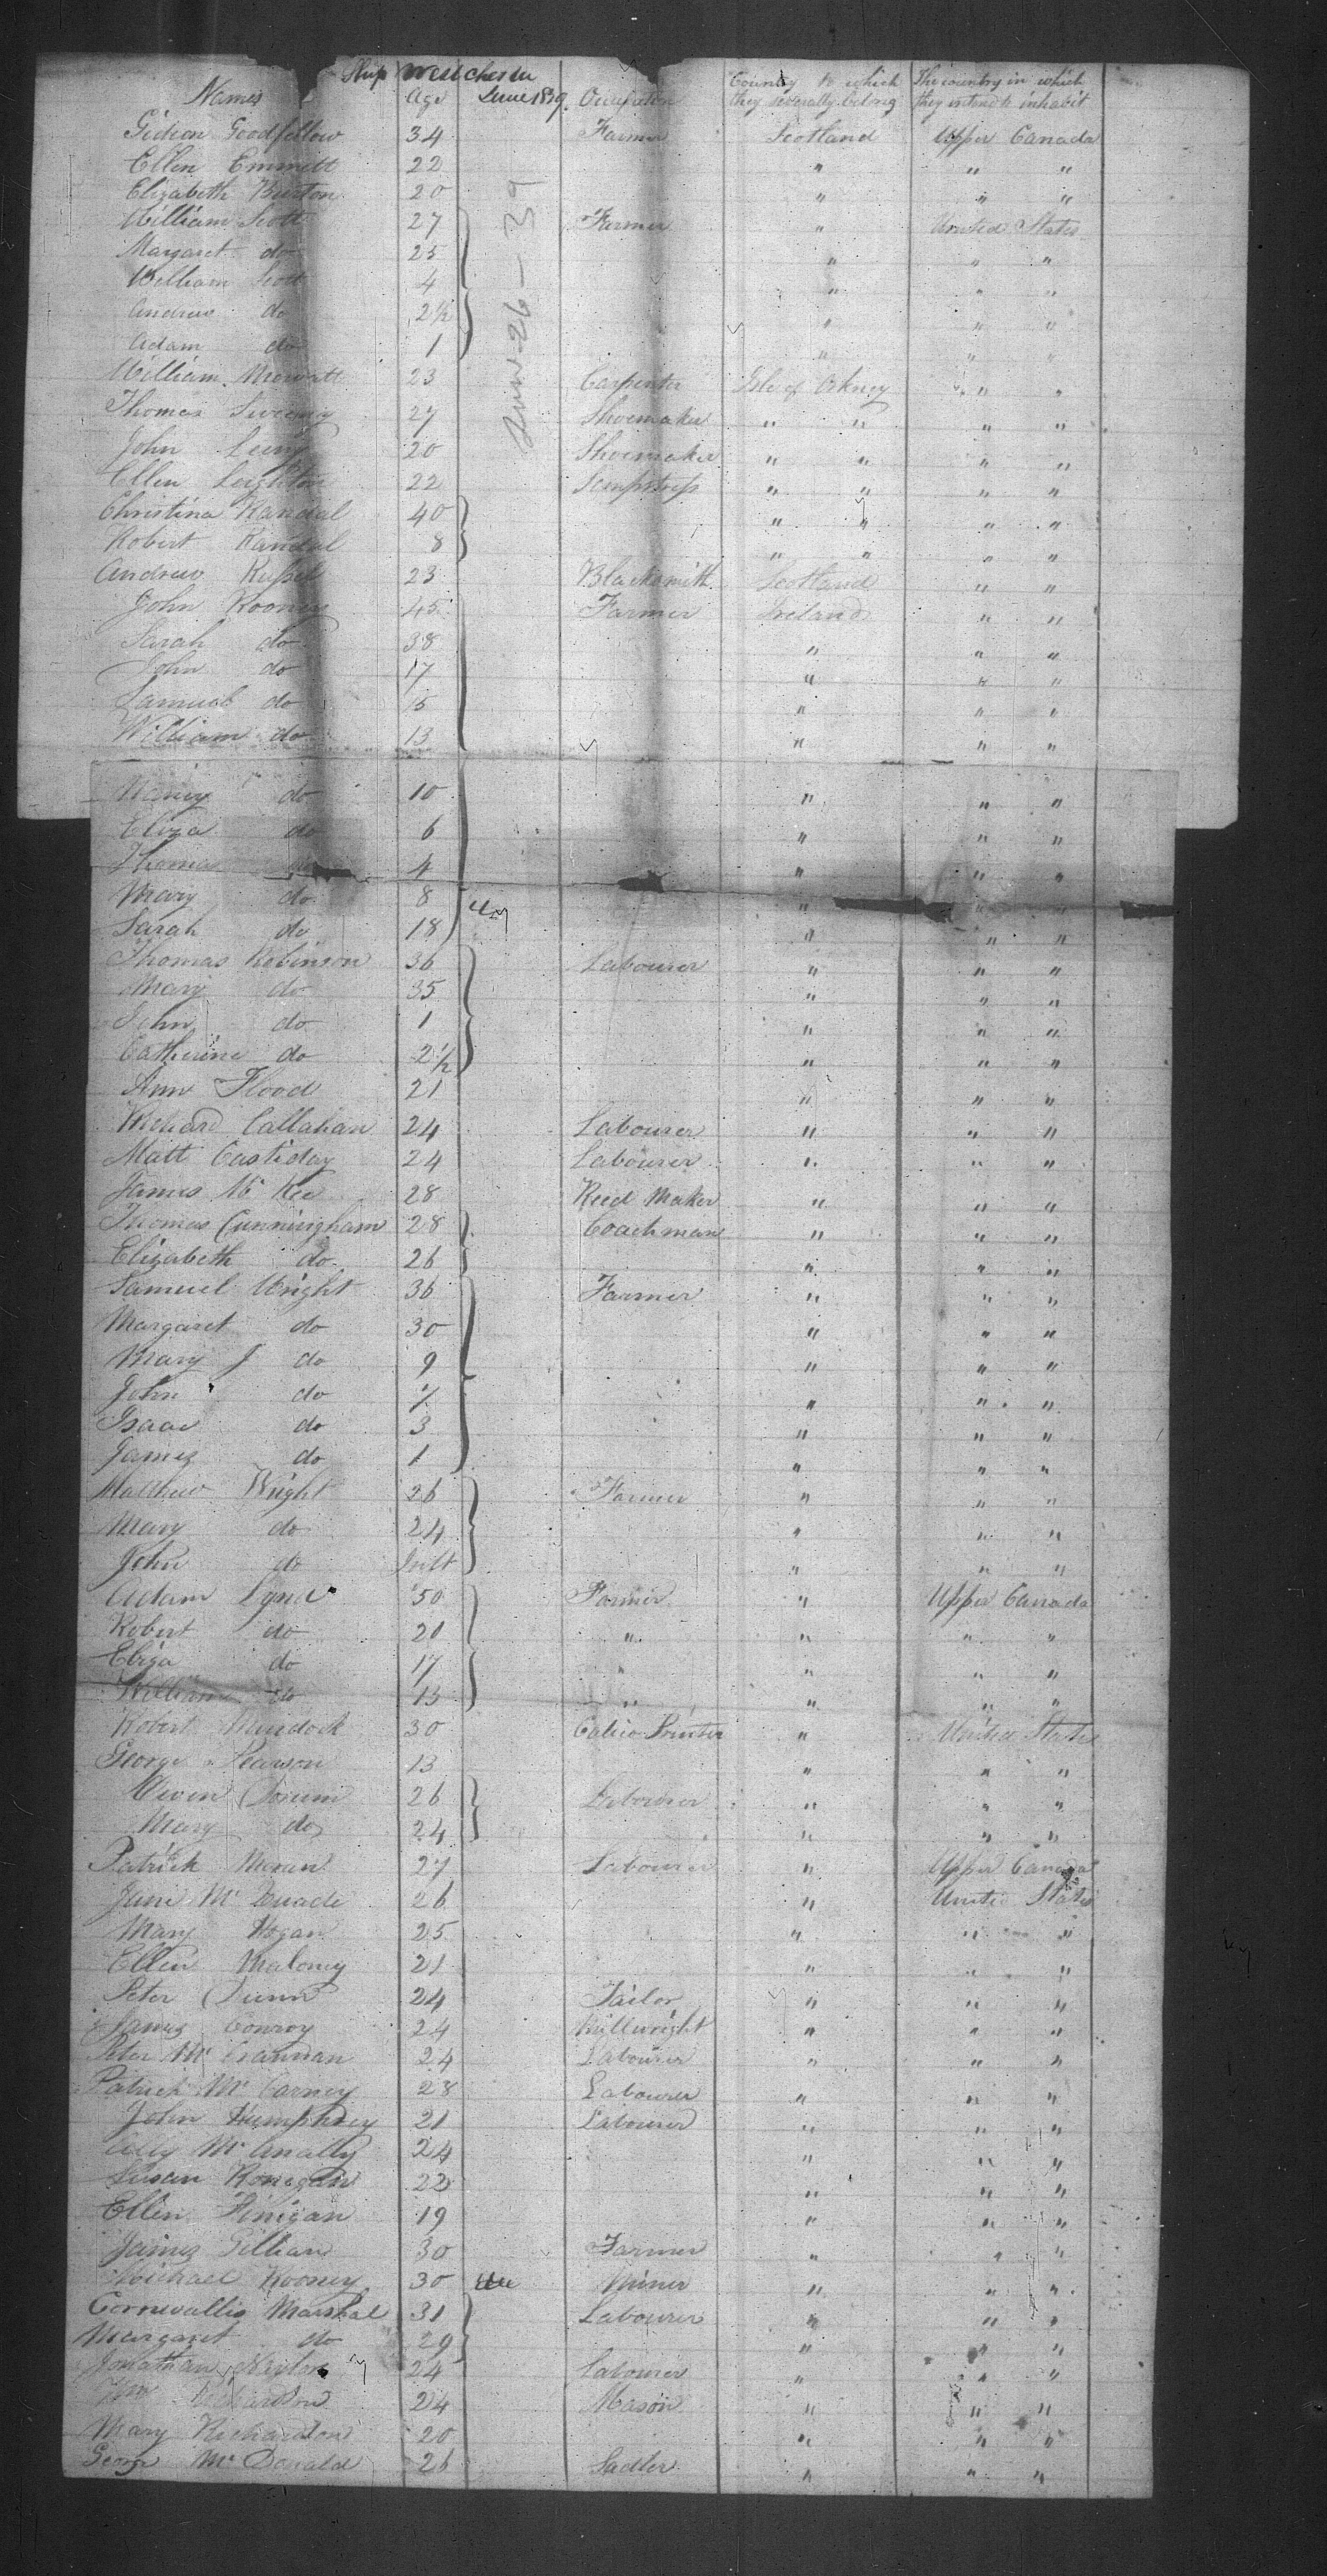 Ship Westchester
June 1839
Names Age Occupation Country to which they severally belong The country in which they intend to inhabit
June 26 - 39
Gidion Goodfellow 34 Farmer Scotland Upper Canada
Ellen Emmett 22 " " "
Elizabeth Burton 20 " " "
William Scott 27 Farmer " United States
Margaret do 25 " " "
William Scott 4 " " "
Andrew do 2½ " " "
Adam do 1 " " "
William Mowatt 23 Carpenter Isle of Orkney " "
Thomas Sweeny 27 Shoemaker " " " "
John 20 Shoemaker " " " "
Ellen Leighton 22 Sempstress " " " "
Christina Randal 40 " " " "
Robert Randal 8 " " " "
Andrew Russel 23 Blacksmith Scotland " "
John Rooney 45 Farmer Ireland " "
Sarah do 38 " " "
John do 17 " " "
Samuel do 15 " " "
William do 13 " " "
Nancy do 10 " " "
Eliza do 6 " " "
Thomas do 4 " " "
Mary do 8 " " "
Sarah do 18 " " "
Thomas Robinson 36 Labourer " " "
Mary do 35 " " "
John do 1 " " "
Catherine do 2½ " " "
Ann Flood 21 " " "
Richard Callahan 24 Labourer " " "
Matt Castiday 24 Labourer " " "
James Mc Kee 28 Reed Maker " " "
Thomas Cunningham 28 Coachman " " "
Elizabeth do 26 " " "
Samuel Wright 36 Farmer " " "
Margaret do 30 " " "
Mary J do 9 " " "
John do 7 " " "
Isaac do 3 " " "
James do 1 " " "
Matthew Wright 26 Farmer " " "
Mary do 24 " " "
John do Inft " " "
Adam Lynd 50 Farmer " Upper Canada
Robert do 20 " " " "
Eliza do 17 " " " "
William do 13 " " " "
Robert Murdock 30 Calico Printer " United States
George Pearson 13 " " "
Owen 26 Labourer " " "
Mary do 24 " " "
Patrick Moran 27 Labourer " Upper Canada
Jane Mc Quade 26 " United States
Mary Hogan 25 " " "
Ellen Maloney 21 " " "
Peter Dunn 24 Tailor " " "
James Conroy 24 Millwright " " "
Peter Mc Crannan 24 Labourer " " "
Patrick Mc Carney 28 Labourer " " "
John Humphrey 21 Labourer " " "
Mc Anally 24 " " "
Susan Ronagan 22 " " "
Ellen Finigan 19 " " "
James Gillian 30 Farmer " " "
Michael Rooney 30 Miner " " "
Cornwallis Marshal 31 Labourer " " "
Margaret do 29 " " "
Jonathan 24 Labourer " " "
Richardson 24 Mason " " "
Mary Richardson 20 " " "
George Mc Donald 26 Sadler " " "